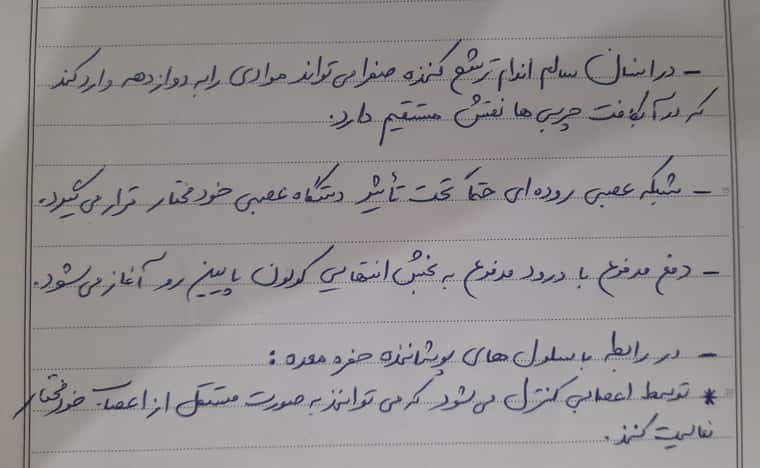 - در انسان سالم اندام ترشح کننده صفرا می تواند موادی را به دوازدهه وارد کند
که در آبکافت چربی ها نقش مستقیم دارد.
- شبکه عصبی روده ای حتما تحت تأثیر دستگاه عصبی خودمختار قرار می گیرد.
- دفع مدفوع با ورود مدفوع به بخش انتهایی کولون پایین رو آغاز می شود.
- در رابطه با سلول های پوشاننده حفره معده :
* توسط اعصابی کنترل می شود که می توانند به صورت مستقل از اعصاب خودمختار
فعالیت کنند.